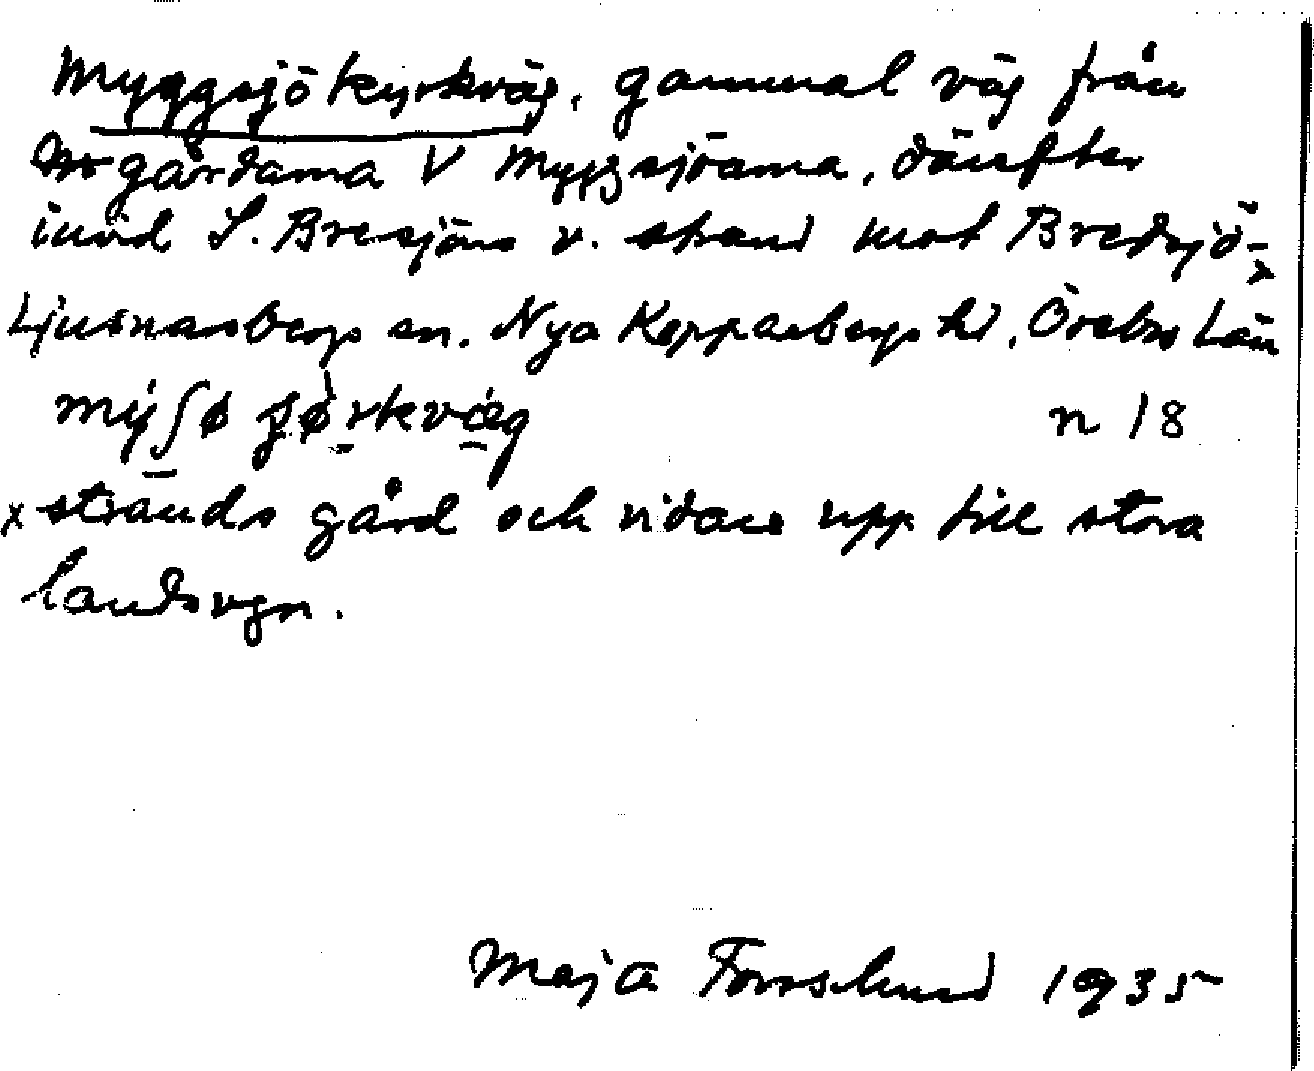 Myggsjökyrkväg, gammal väg från
gårdarna V Myggsjöarna, därefter
invid S. Bresjöns v. strand mot Bredsjö-x
Ljusnarsbergs sn. Nya Kopparbergs hd, Örebro Län
mýʃø ʃø̀rkvæg n 18
x strands gård och vidare upp till stora
landsvgn.
Maja Forsslund 1935